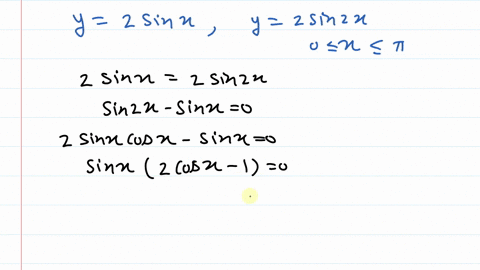 y = 2 sin x , y = 2 sin 2x
0 ≤ x ≤ π
2 sin x = 2 sin 2x
sin 2x - sin x = 0
2 sin x cos x - sin x = 0
sin x ( 2 cos x - 1 ) = 0